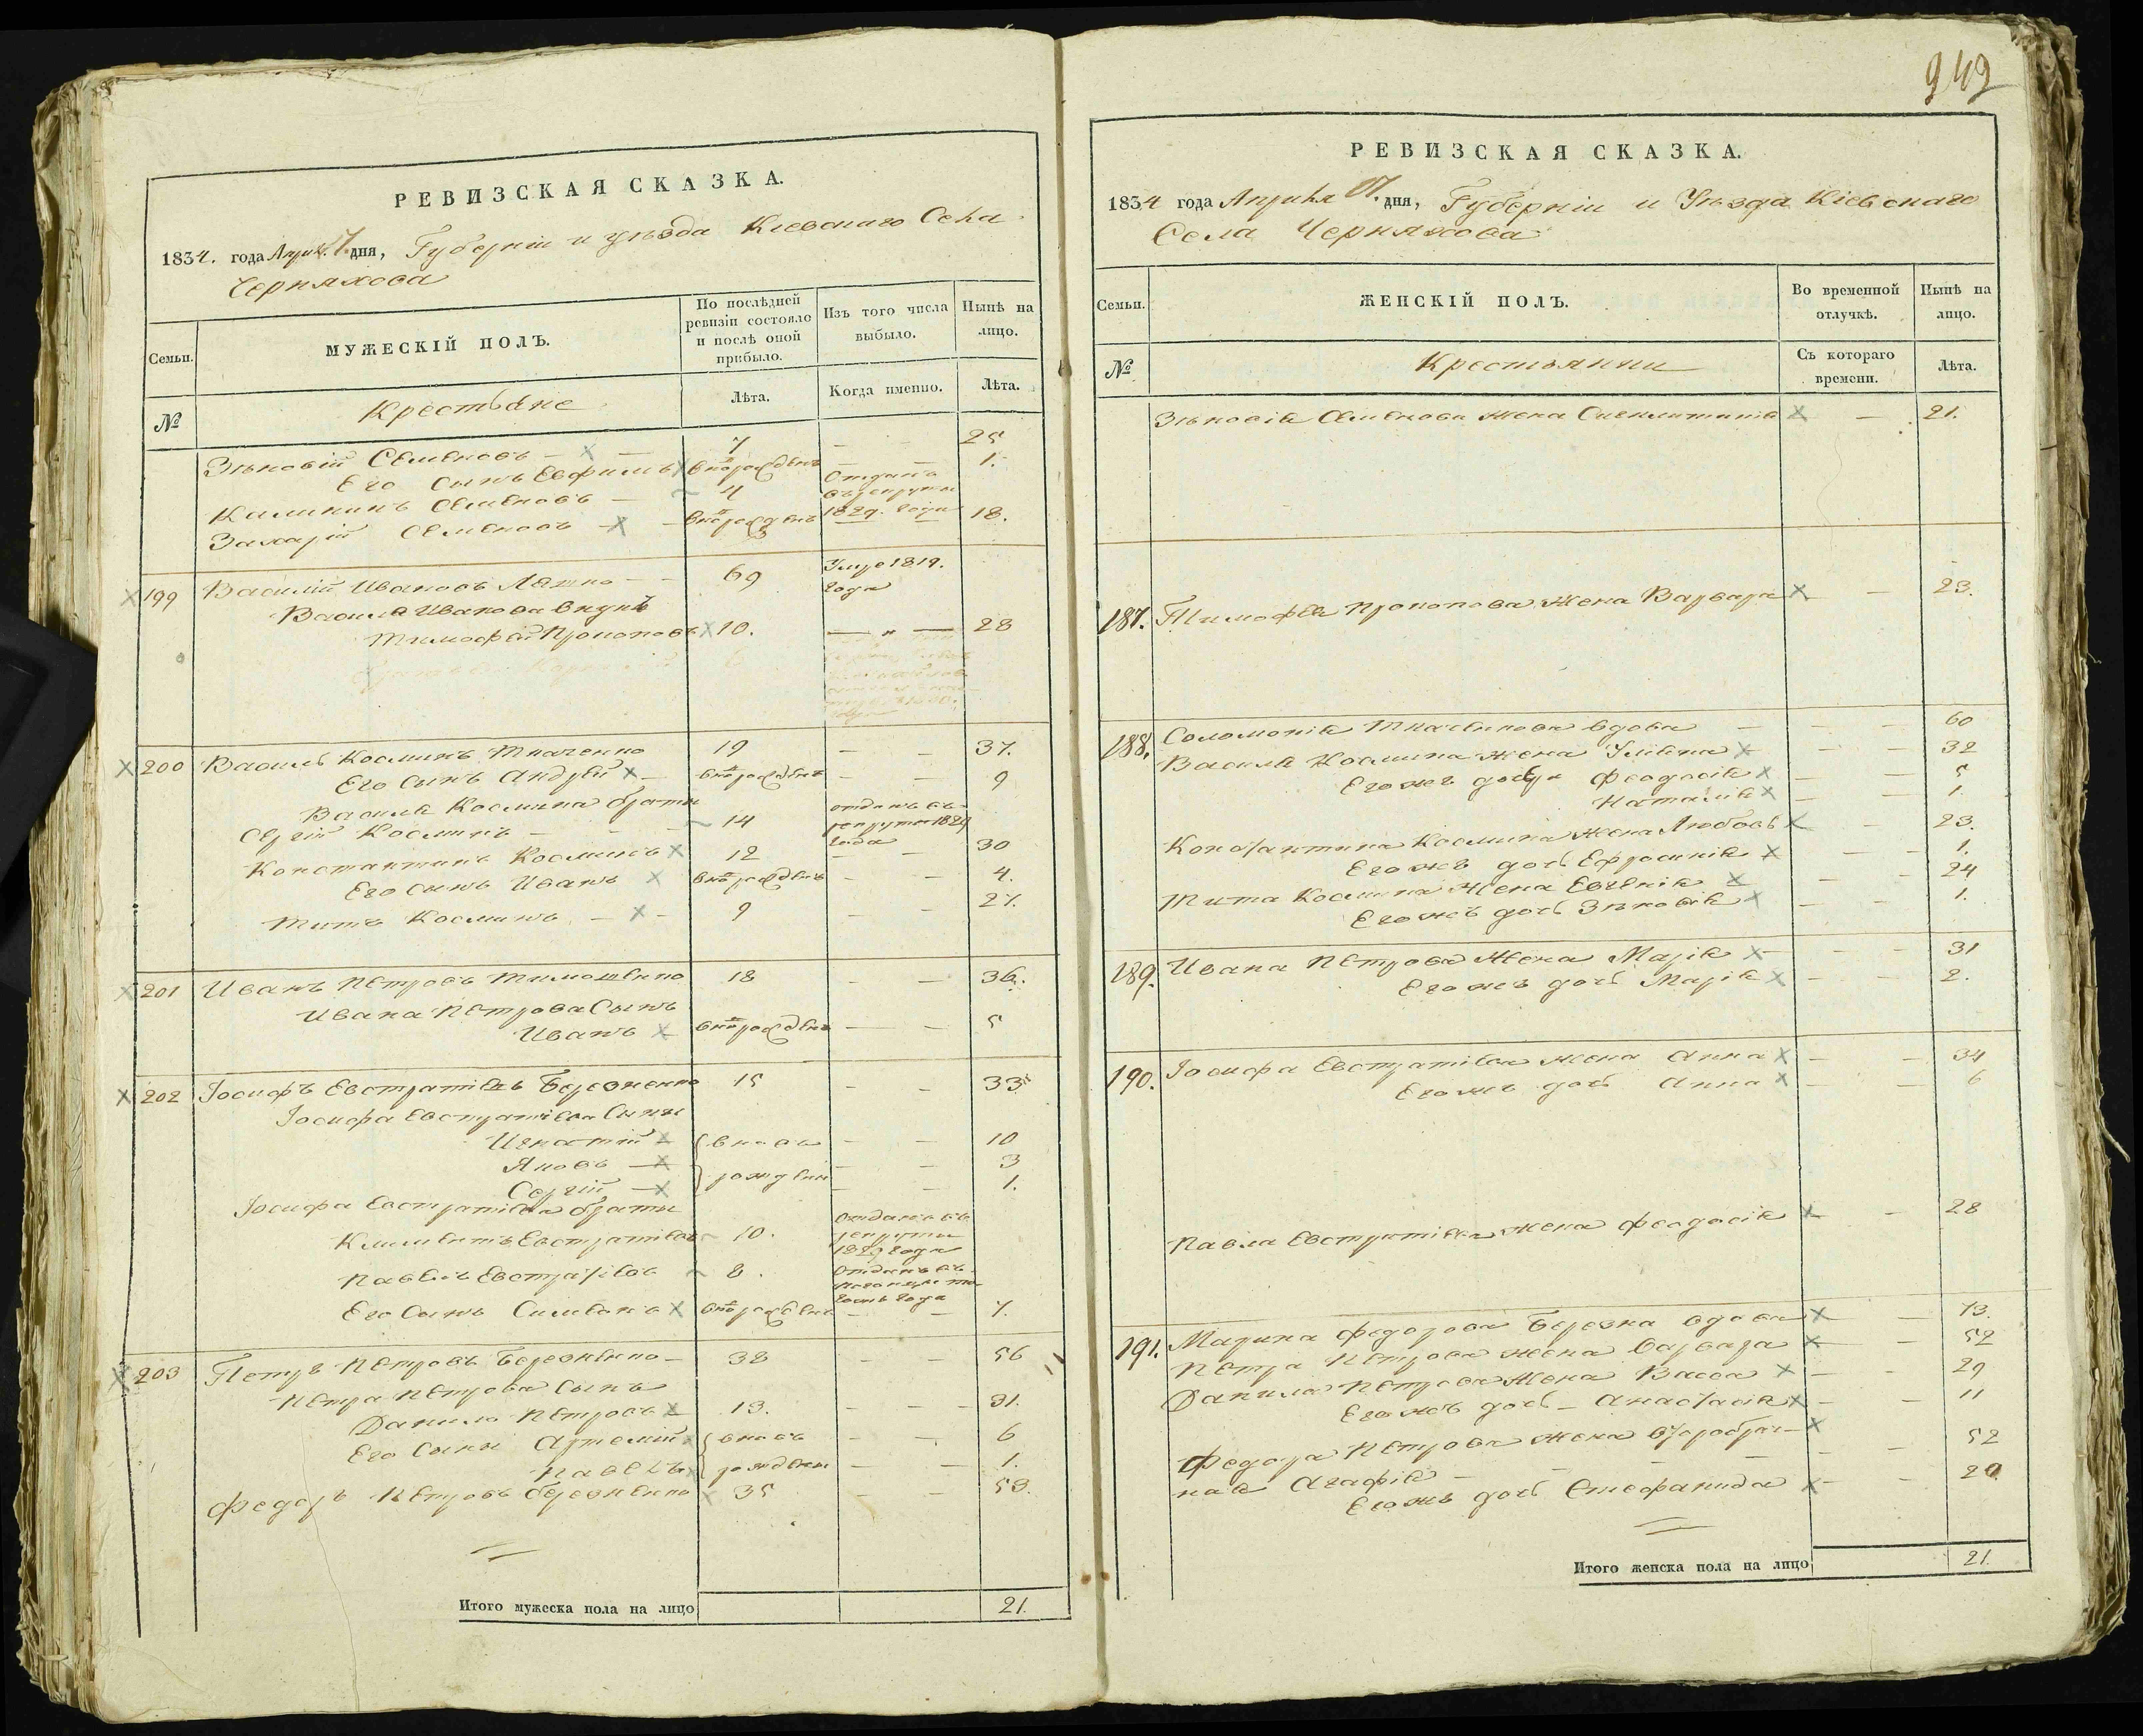 949
РЕВИЗСКАЯ СКАЗКА.
1834. года Апрл. 17. дня, Губерніи и уѣзда Кіевскаго Села
Черняхова
Семьи. МУЖЕСКІЙ ПОЛЪ. По послѣдней ревизіи состояло и послѣ оной прибыло. Изъ того числа выбыло. Нынѣ на лицо.
№ Крестьяне Лѣта. Когда именно. Лѣта.
Зѣновій Семеновъ — 7 — — 25
Его сынъ Евфимъ — — 1.
Семеновъ — 4 Отданъ въ рекруты 1829. года
Захарій Семеновъ — 18.
199 Василій Ивановъ Ляшко — — 69 Умре 1819. года
Василя Иванова внукъ
Тимофей Прокоповъ 10. — „ — 28
200 Василь Косминъ Ткаченко 19 — — 37.
Его сынъ Андрей — — — 9
Василя Космина братья
Сергій Косминъ — — — 14 отданъ въ рекруты 1829 года
Константинъ Косминъ 12 — — 30
Его сынъ Иванъ — — 4.
Титъ Косминъ — — 9 — — 27.
201 Иванъ Петровъ Тимошенко 18 — — 36.
Ивана Петрова Сынъ
Иванъ — — 5
202 Іосифъ Евстратіевъ Березненко 15 — — 33
Іосифа Евстратіева Сыны
Игнатій вновь — — 10
Яковъ — рожденн — — 3
Сергій — — — 1.
Іосифа Евстратіева братья
Климентъ Евстратіевъ 10. Отданъ въ рекруты 1829 года
Павелъ Евстратіевъ 8. Отданъ въ года
Его Сынъ Симеонъ — — 7.
203 Петръ Петровъ Березненко — 38 — — 56
Петра Петрова Сынъ
Данило Петровъ 13. — — — 31.
Его Сыны Артемій вновь — — 6
Павелъ рожденн — — 1.
Федоръ Петровъ Березненко 35 — — 53.
Итого мужеска пола на лицо 21.
РЕВИЗСКАЯ СКАЗКА.
1834 года Апрѣля 17. дня, Губерніи и Уѣзда Кіевскаго
Села Черняхова
Семьи. ЖЕНСКІЙ ПОЛЪ. Во временной отлучкѣ. Нынѣ на лицо.
№ Крестьянки Съ котораго времени. Лѣта.
Зѣновія Семенова жена — 21.
187. Тимофея Прокопова жена Варвара — 23.
188. Соломонія Ткаченкова вдова — — — 60
Василя Космина жена Уліяна — — 32
Его жъ дочери Феодосія — — 5
Наталія — — 1.
Константина Космина жена Любовь — 23.
Его жъ дочь Ефросинія — — 1.
Тита Космина жена Евгенія — — 24
Его жъ дочь Зѣновія — — 1.
189. Ивана Петрова жена Марія — — — 31
Его жъ дочь Марія — — 2.
190. Іосифа Евстратіева жена Анна — — 34
Его жъ дочь Анна — — 6
Павла Евстратіева жена Феодосія — 28
191. Марина Федорова Березка вдова — 73.
Петра Петрова жена Варвара — 52
Данила Петрова жена Васса — — 29
Его жъ дочь — Анастасія — — 11
Федора Петрова жена второбрач-
ная Агафія — — — 52
Его жъ дочь Стефанида — — 20
Итого женска пола на лицо 21.